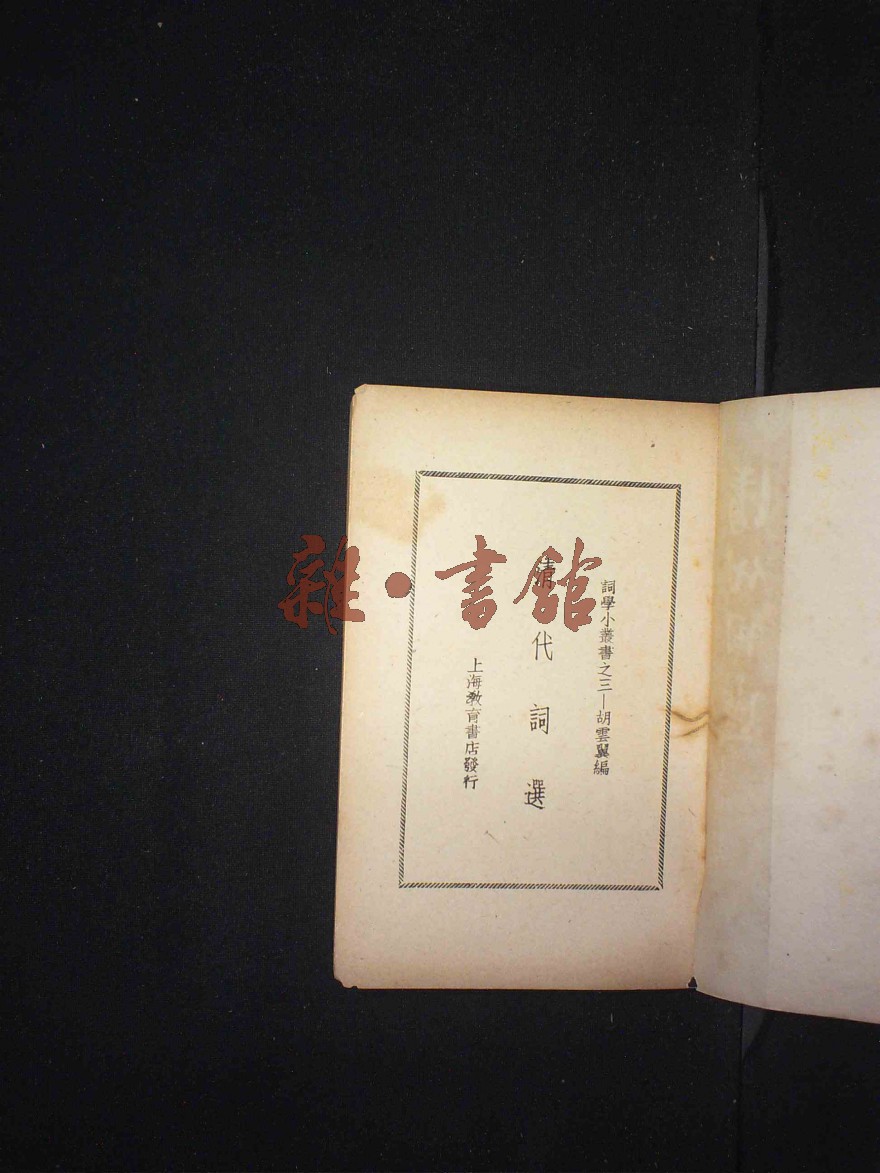 詞學小叢書之三—胡雲翼編
清代詞選
上海教育書店發行
雜·書館